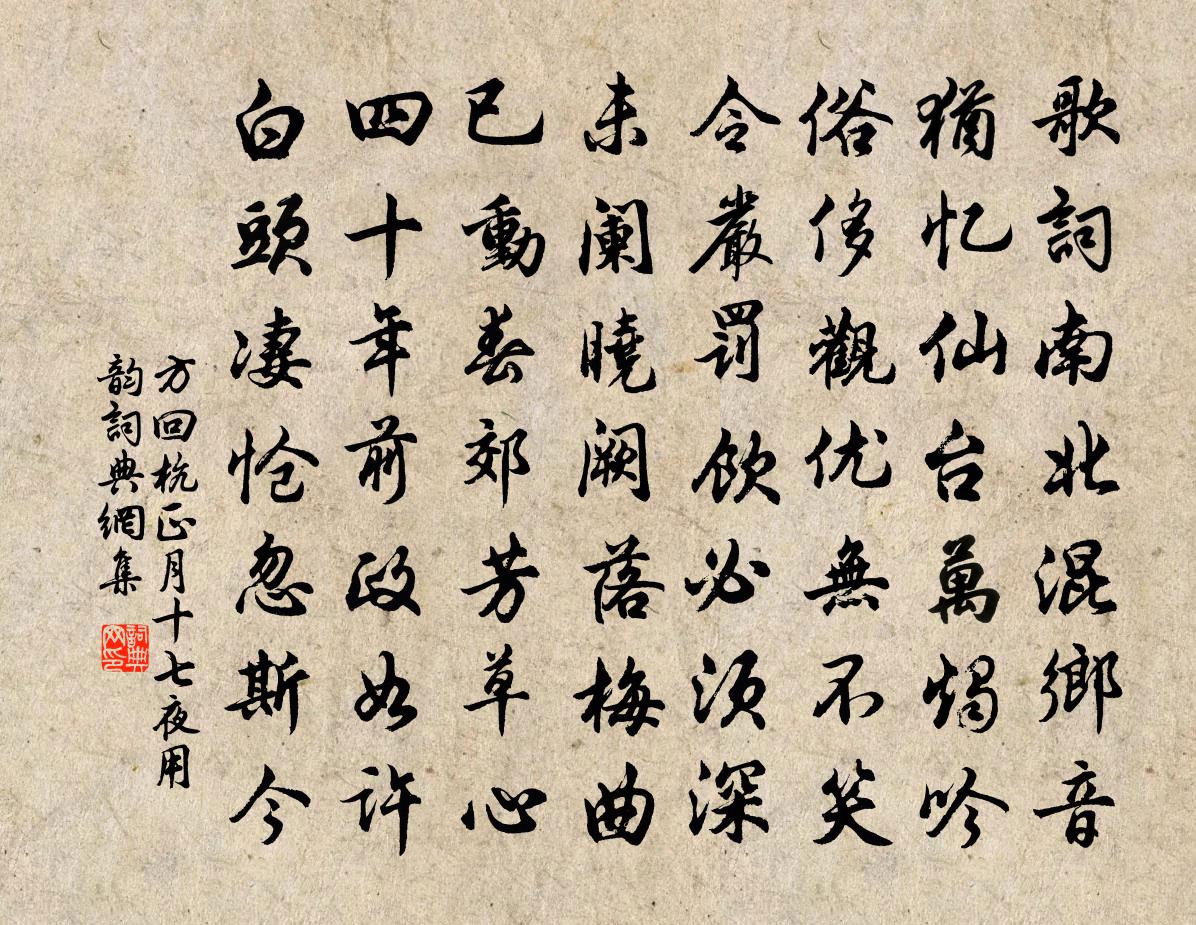 歌詞南北混鄉音
猶忆仙台萬燭吟
俗侈觀优無不笑
令嚴罰飲必須深
未阑曉阙落梅曲
已動春郊芳草心
四十年前政如许
白頭凄怆忽斯今
方回杭正月十七夜用
韵詞典網集
詞典
网印